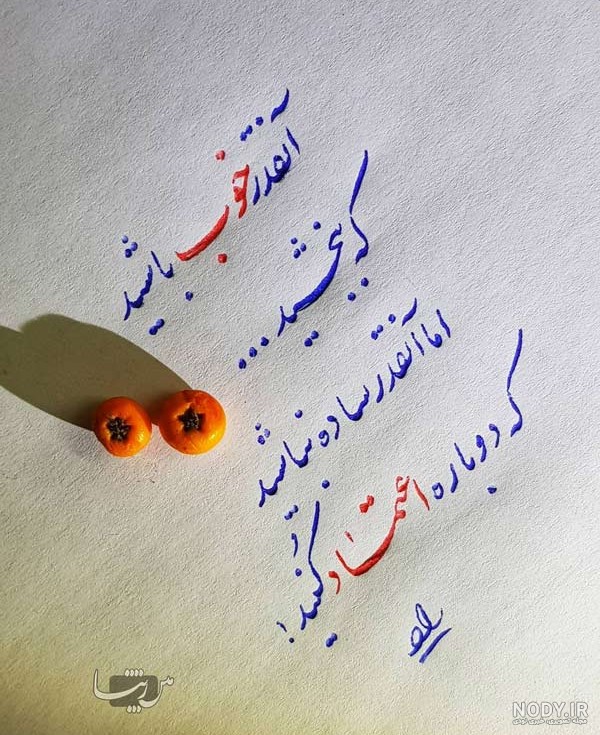 آنقدر خوب باشید
که ببخشید...
اما آنقدر ساده نباشید
که دوباره اعتماد
کنید!
NODY.IR